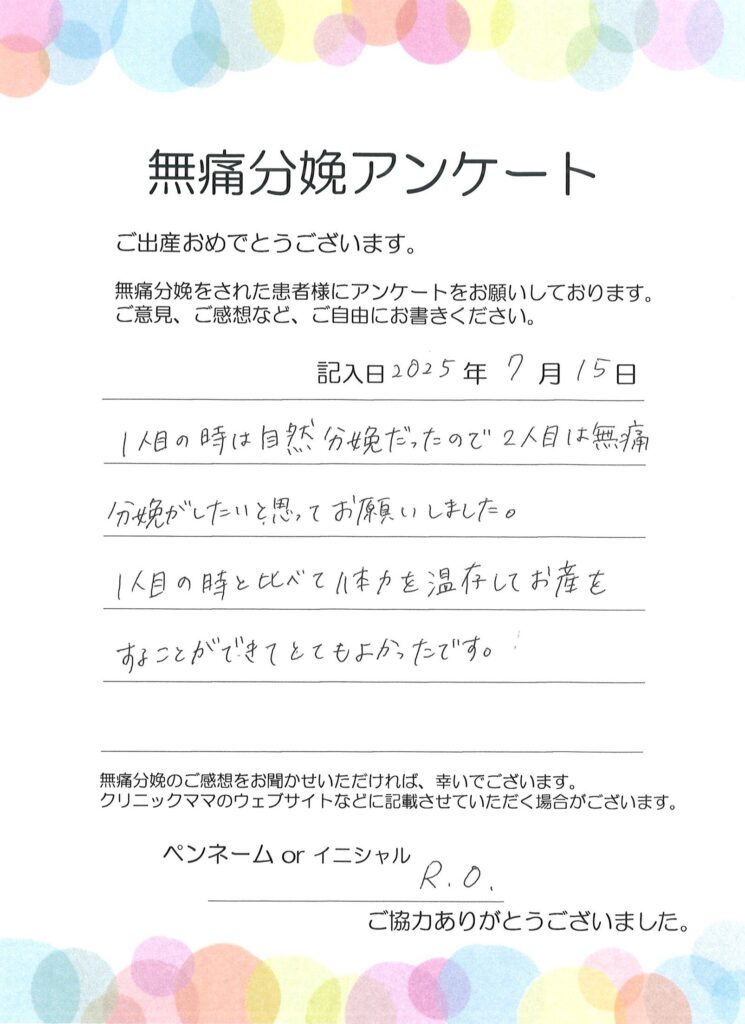 無痛分娩アンケート
ご出産おめでとうございます。
無痛分娩をされた患者様にアンケートをお願いしております。
ご意見、ご感想など、ご自由にお書きください。
記入日2025年 7月15日
1人目の時は自然分娩だったので2人目は無痛
分娩がしたいと思ってお願いしました。
1人目の時と比べて体力を温存してお産を
することができてとてもよかったです。
無痛分娩のご感想をお聞かせいただければ、幸いでございます。
クリニックママのウェブサイトなどに記載させていただく場合がございます。
ペンネーム or イニシャル
R.O.
ご協力ありがとうございました。